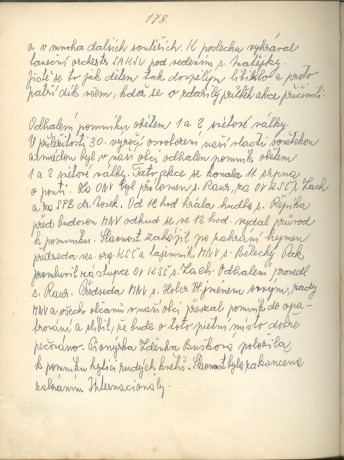 178.
a v mnoha dalších soutěžích. K poslechu vyhrával
taneční orchestr JAKSU pod vedením s. Matějky.
Jistě se to jak dětem tak dospělým líbilo a proto
patří dík všem, kdož se o zdařilý průběh akce přičinili.
Odhalení pomníku obětem 1 a 2 světové války.
U příležitosti 30. výročí osvobození naší vlasti sovětskou
armádou byl v naší obci odhalen pomník obětem
1 a 2 světové války. Tato akce se konala 11 srpna
o pouti. Za ONV byl přítomen s. Raur, za OV KSČ s. Zach
a za SPB dr. Vosek. Od 12 hod hrála hudba s. Řepíka
před budovou MNV odkud se ve 13 hod. vydal průvod
k pomníku. Slavnost zahájil po zahrání hymen
předseda ves. org. KSČ a tajemník MNV s. Bělecký. Pak
promluvil zástupce OV KSČ s. Zach. Odhalení provedl
s. Raur. Předseda MNV s. Holec V. jménem svým, rady
MNV a všech občanů v naší obci převzal pomník do opa-
trování a slíbil, že bude o toto pietní místo dobře
pečováno. Pionýrka Zdeňka Burešová položila
k pomníku kytici rudých květů. Slavnost byla zakončena
zahráním Internacionály.